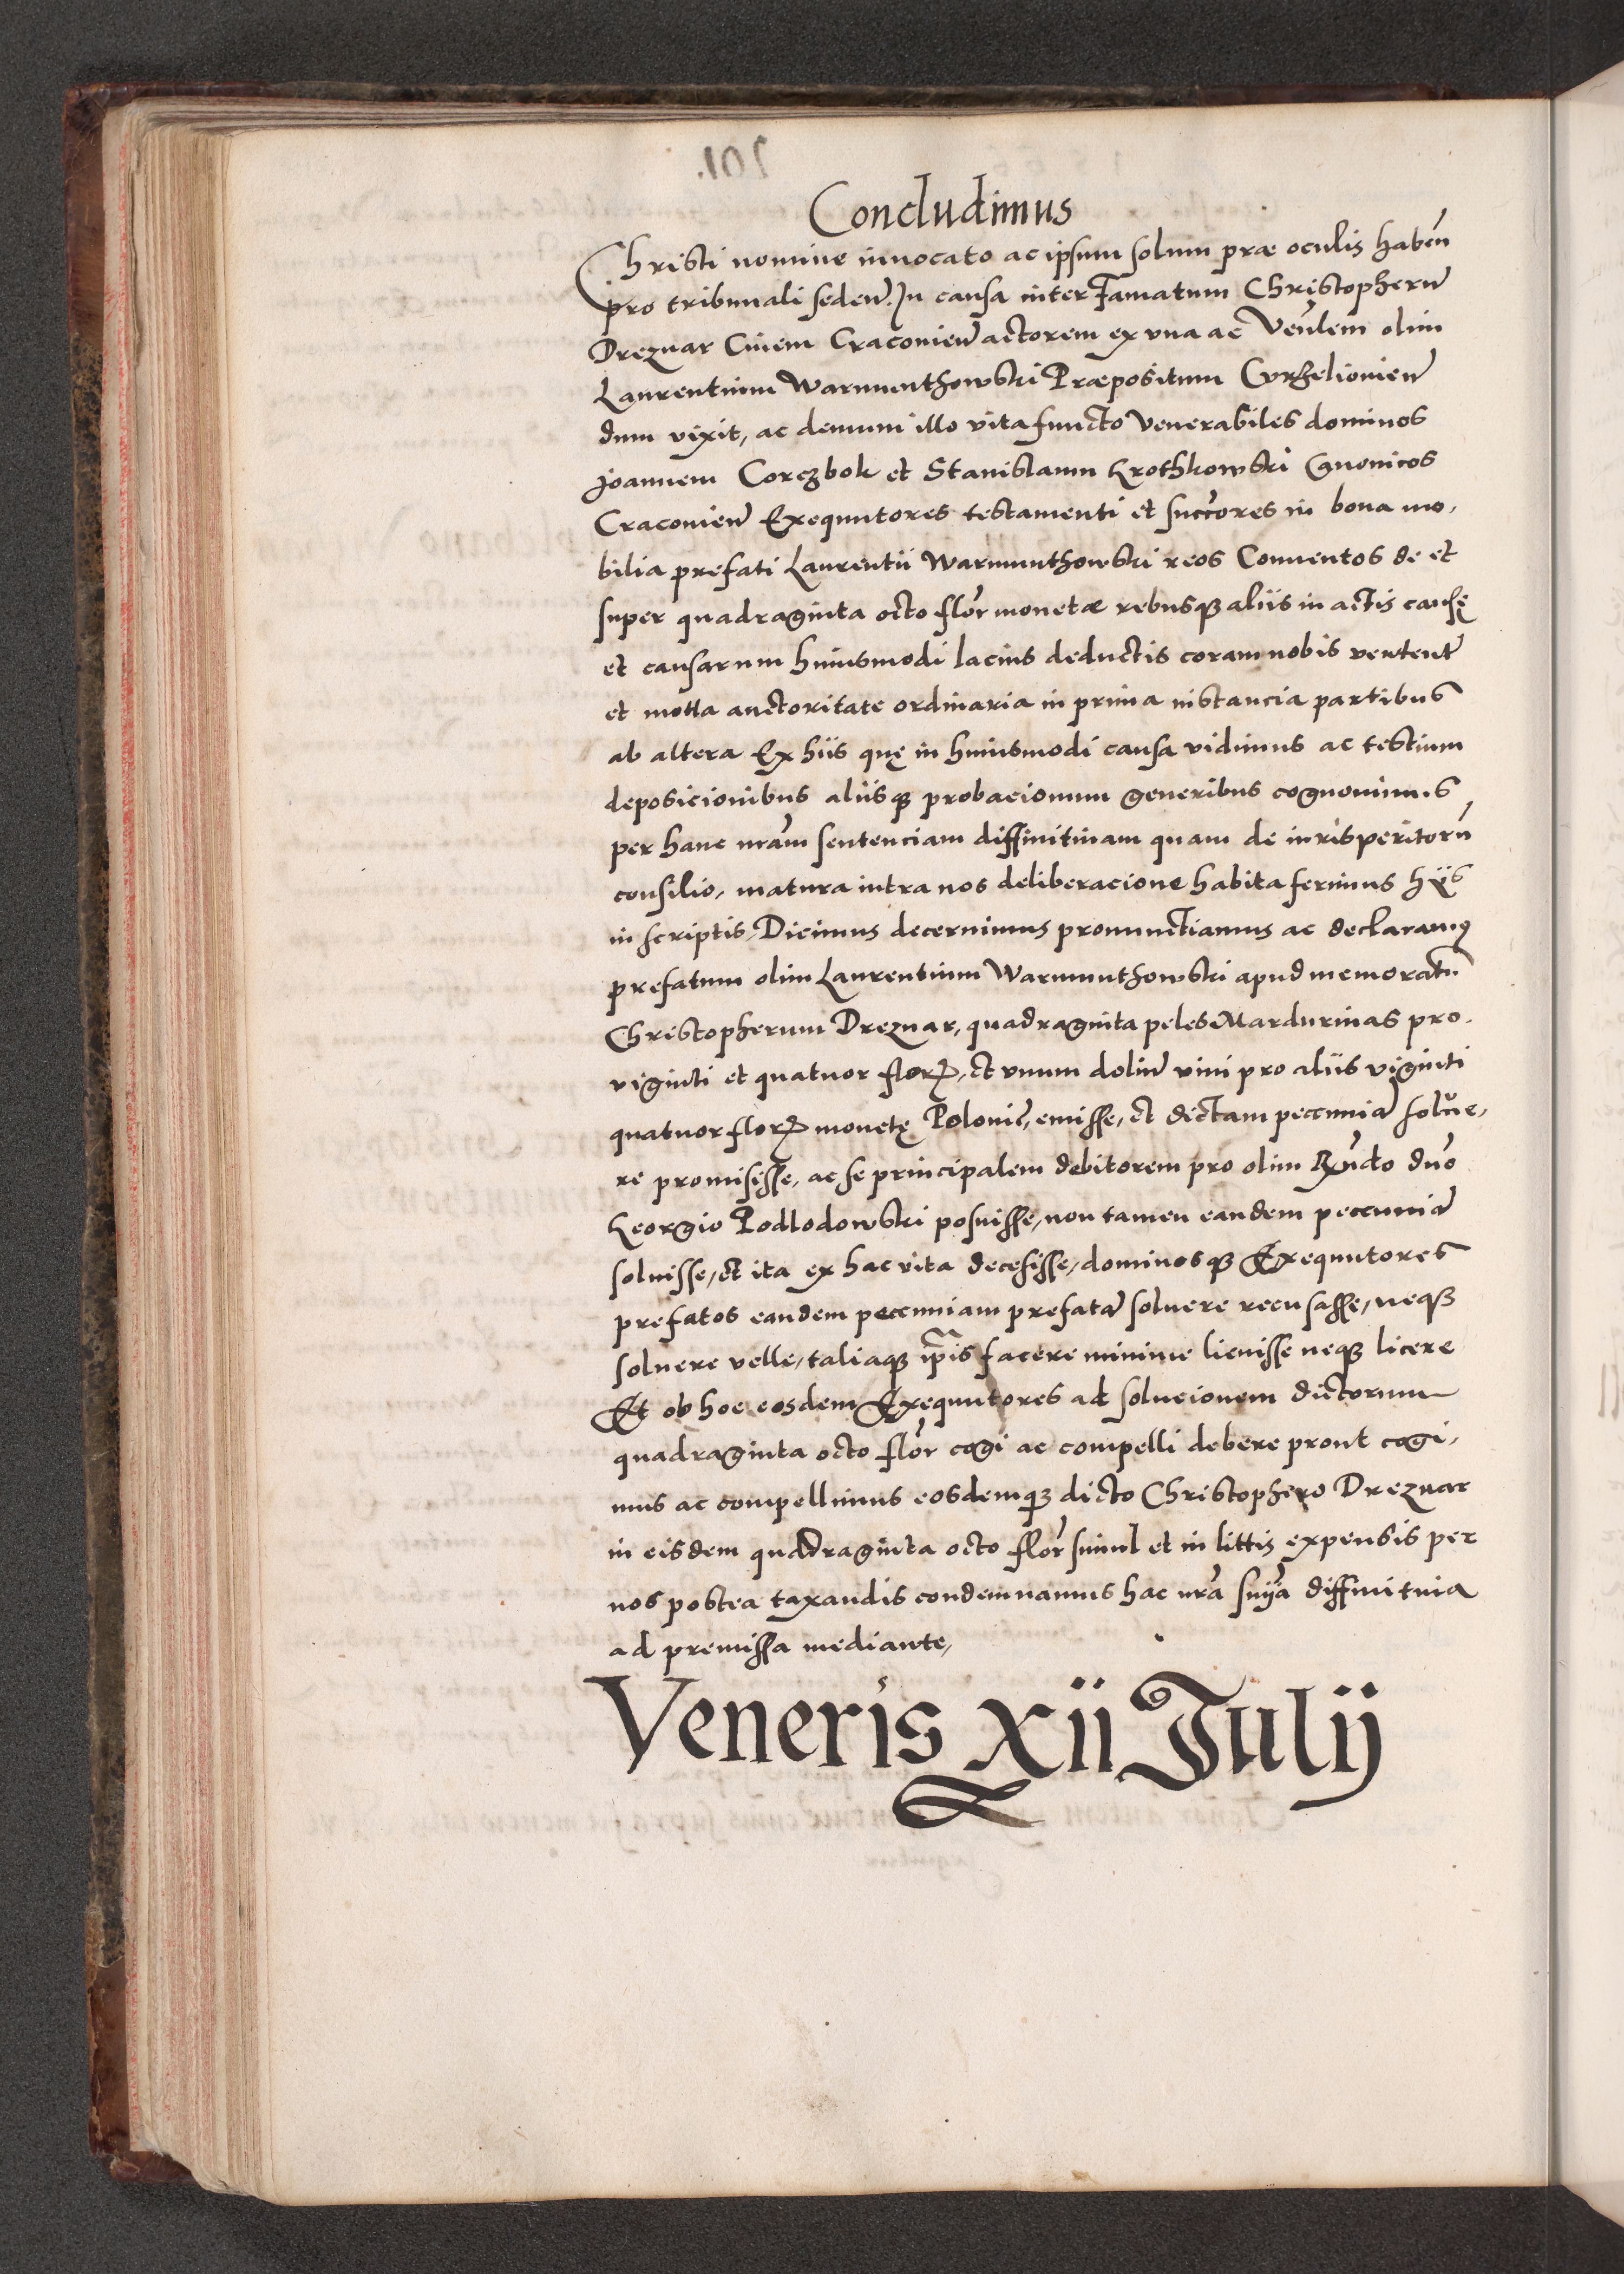 Concludimus
Christi nomine invocato ac ipsum solum præ oculis haben̄
pro tribunali seden̄. In causa inter Famatum Christopherū
Dreznar Civem Cracovien̄ actorem ex vna ac Ven̄lem olim
Laurentium Warmunthowski Præpositum Curzelovien̄
dum vixit, ac demum illo vita functo Venerabiles dominos
Joannem Corczbok et Stanislaum Krothkowski Canonicos
Cracovien̄ Exequutores testamenti et succ̄ores in bona mo,
bilia prefati Laurentii Warmunthowski reos Conventos de et
super quadraginta octo flor̄ monetæ rebusqꝫ aliis in actis causę
et causarum huiusmodi lacius deductis coram nobis vertent̄
et motta auctoritate ordinaria in prima instancia partibus
ab altera Ex hiis quę in huiusmodi causa vidimus ac testium
deposicionibus aliisqꝫ probacionum generibus cognovimus
per hanc nr̄am sentenciam diffinitivam quam de iurisperitorū
consilio, matura intra nos deliberacione habita ferimus hys
in scriptis, Dicimus decernimus pronunctiamus ac declaramꝰ
prefatum olim Laurentium Warmunthowski apud memoratū
Christopherum Dreznar, quadraginta peles Mardurinas pro
viginti et quatuor florꝝ, et vnum doliū vini pro aliis viginti
quatuor florꝝ monetę Polonic̄, emisse, et dictam peccuniā solue,
re promisisse, ac se principalem debitorem pro olim Rn̄do dn̄o
Georgio Podlodowski posuisse, non tamen eandem peccuniā
soluisse, et ita ex hac vita decesisse, dominosqꝫ Exequutores
prefatos eandem peccuniam prefatā soluere recusasse, neqꝫ
soluere velle, taliaqꝫ ip̄is facere minime licuisse neqꝫ licere
Et ob hoc eosdem Exequutores ad solucionem dictorum
quadraginta octo flor̄ cogi ac compelli debere prout cogi,
mus ac compellimus eosdemqꝫ dicto Christophero Dreznar
in eisdem quadraginta octo flor̄ simul et in littis expensis per
nos postea taxandis condemnamus hac nr̄a sn̄ya diffinitiva
ad premissa mediante,
Veneris xii Julij